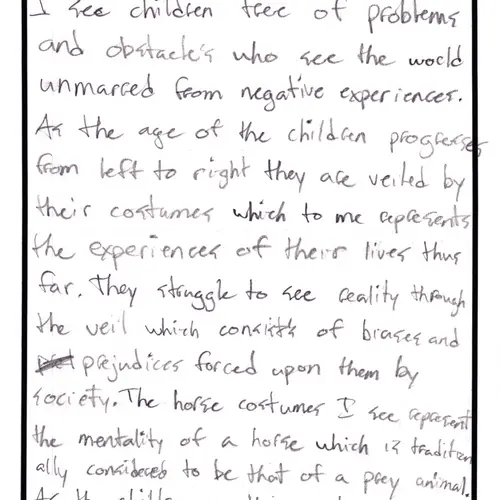 I see children free of problems
and obstacle's who see the world
unmarred from negative experiences.
As the age of the children progresses
from left to right they are veiled by
their costumes which to me represents
the experiences of theirs lives thus
far. They struggle to see reality through
the veil which consists of biases and
prejudices forced upon them by
society. The horse costumes I see represent
the mentality of a horse which is tradition
ally considered to be that of a prey animal.
As the